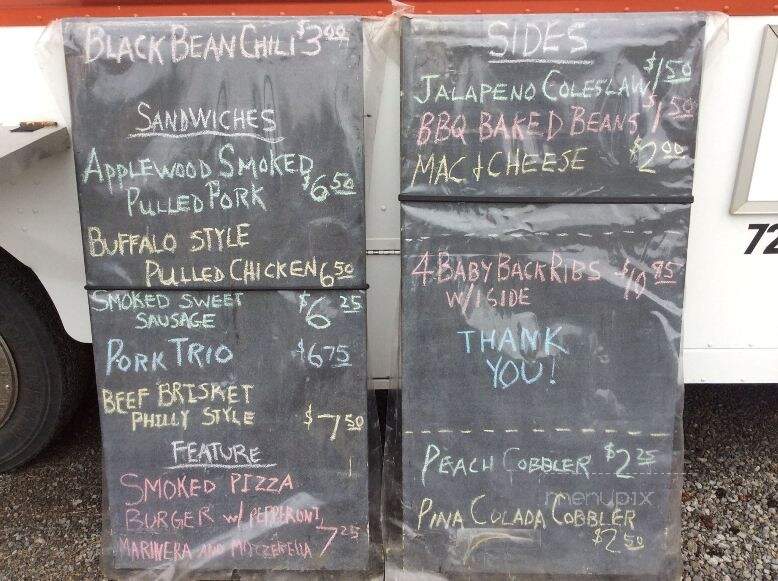 BLACK BEAN CHILI $3.00
SANDWICHES
APPLEWOOD SMOKED
PULLED PORK $6.50
BUFFALO STYLE
PULLED CHICKEN 6.50
SMOKED SWEET
SAUSAGE $6.25
PORK TRIO $6.75
BEEF BRISKET
PHILLY STYLE $7.50
FEATURE
SMOKED PIZZA
BURGER w/ PEPPERONI,
MARINERA AND MOZZERELLA 7.25
SIDES
JALAPENO COLESLAW $1.50
BBQ BAKED BEANS $1.50
MAC & CHEESE $2.00
4 BABY BACK RIBS $10.95
W/1 SIDE
THANK
YOU!
PEACH COBBLER $2.25
PINA COLADA COBBLER
$2.50
72
menupix